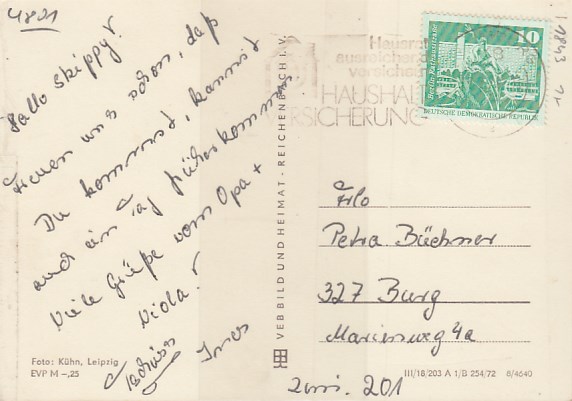 4801
Hallo Skippy!
Freuen uns schon, daß
Du kommst, kannst
auch ein Tag früher kommen
Viele Grüße vom Opa +
Viola!
Tschüss
Ines
Foto: Kühn, Leipzig
EVP M –,25
VEB BILD UND HEIMAT · REICHENBACH I. V.
Hausrat
ausreichend
versichern
HAUSHALT
VERSICHERUNG
10
DEUTSCHE DEMOKRATISCHE REPUBLIK
Petra Büchner
327 Burg
Marienweg 4a
III/18/203 A 1/B 254/72 8/4640